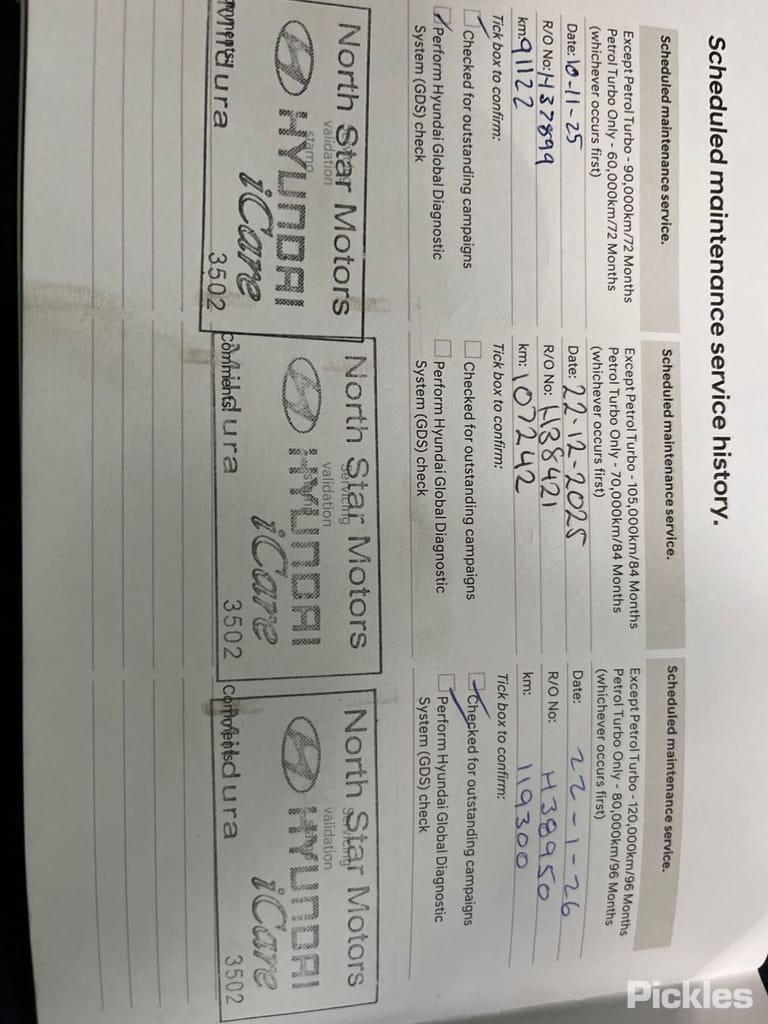 Scheduled maintenance service history.
Scheduled maintenance service.
Except Petrol Turbo - 90,000km/72 Months
Petrol Turbo Only - 60,000km/72 Months
(whichever occurs first)
Date: 10-11-25
R/O No: H37899
km: 91122
Tick box to confirm:
Checked for outstanding campaigns
Perform Hyundai Global Diagnostic
System (GDS) check
North Star Motors
stamp
validation
HYUNDAI
iCare
Mildura 3502
Scheduled maintenance service.
Except Petrol Turbo - 105,000km/84 Months
Petrol Turbo Only - 70,000km/84 Months
(whichever occurs first)
Date: 22-12-2025
R/O No: H38421
km: 107242
Tick box to confirm:
Checked for outstanding campaigns
Perform Hyundai Global Diagnostic
System (GDS) check
North Star Motors
servicing
validation
HYUNDAI
iCare
Comments:
Mildura 3502
Scheduled maintenance service.
Except Petrol Turbo - 120,000km/96 Months
Petrol Turbo Only - 80,000km/96 Months
(whichever occurs first)
Date: 22-1-26
R/O No: H38950
km: 119300
Tick box to confirm:
Checked for outstanding campaigns
Perform Hyundai Global Diagnostic
System (GDS) check
North Star Motors
servicing
validation
HYUNDAI
iCare
Comments
Mildura 3502
Pickles